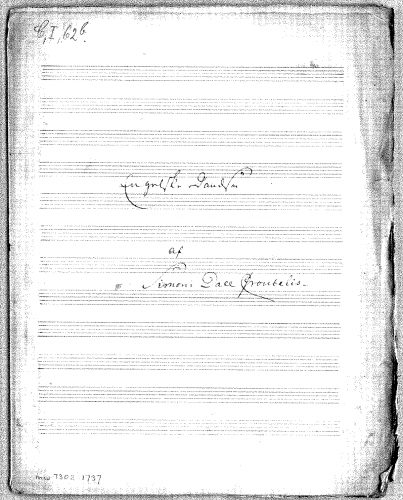 C, I, 62 b.
Engelske Dandse
af
Simoni Dall Croubelis.
mu 7302 1737